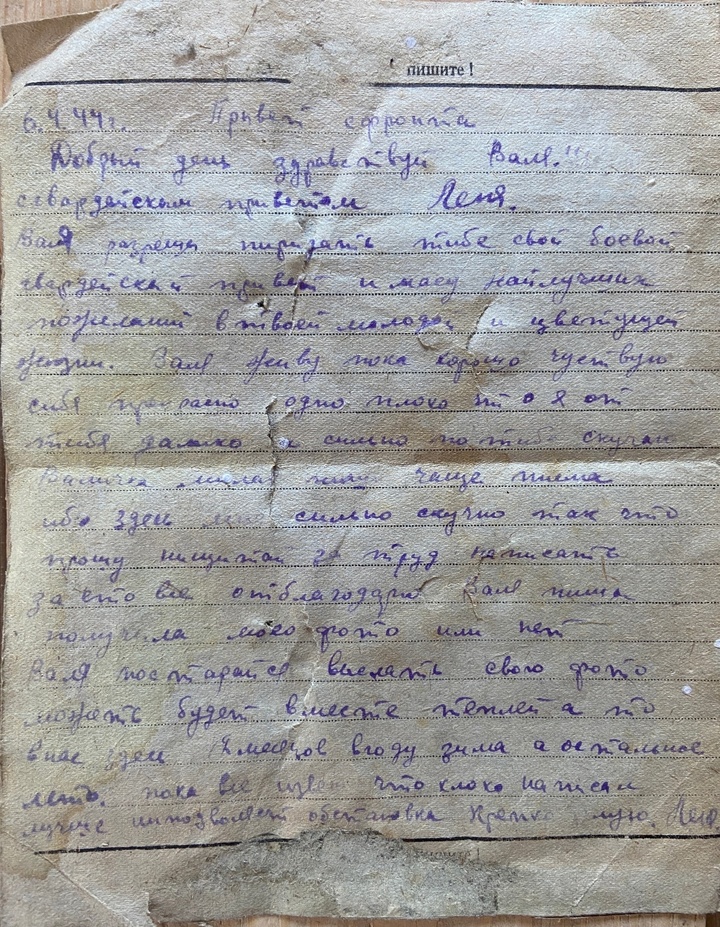 пишите!
6.4.44г. Привет сфронта
Добрый день здравствуй Валя.!!!
сгвардейским приветом Леня.
Валя разреши пиридать тибе свой боевой
гвардейский привет и масу найлучших
пожеланий втвоей молодой и цветущей
жизни. Валя живу пока хорошо чуствую
сибя прекрасно одно плохо што я от
тибя далико и сильно по тибе скучаю
Валичка милая пиши чаще писма
ибо здесь мне сильно скучно так что
прошу нищитай за труд написать
за ето все отблагодарю Валя пиши
получила мое фото или нет
Валя постарайся выслать свою фото
можеть будет вместе теплей а то
внас здесь месяцов вгоду зима а остальное
лето. пока все что плохо написал
лучше непозволяет обстановка Крепко Леня
пишите!